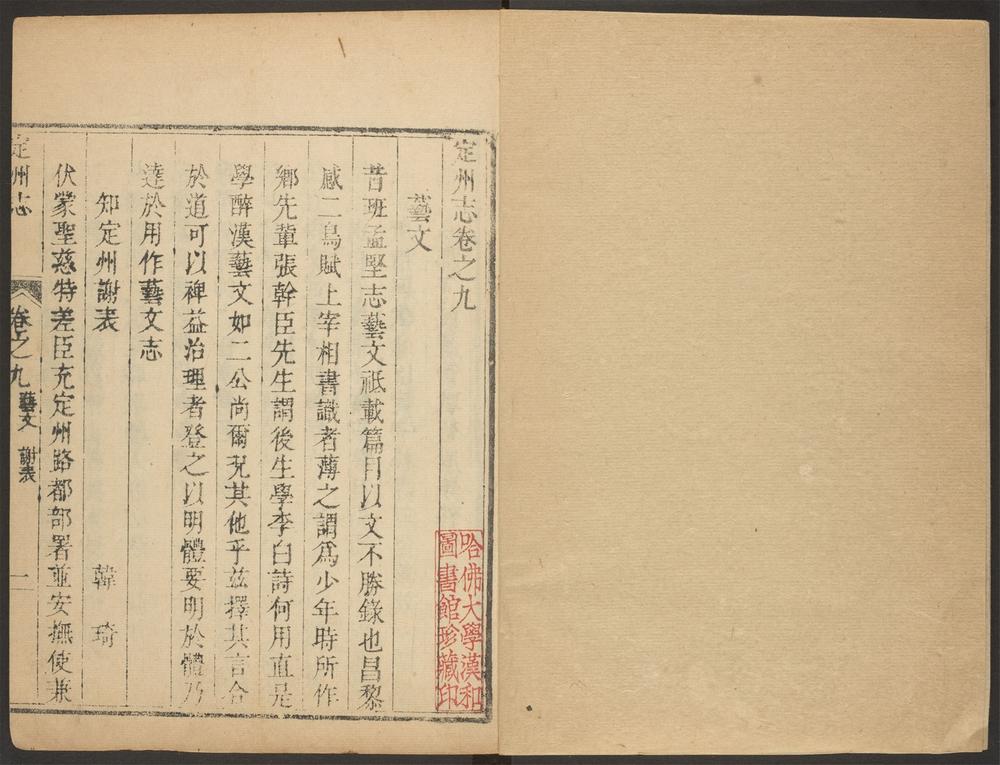 定州志卷之九
藝文
昔班孟堅志藝文祗載篇目以文不勝錄也昌黎
感二鳥賦上宰相書識者薄之謂爲少年時所作
鄉先輩張幹臣先生謂後生學李白詩何用直是
學醉漢藝文如二公尚爾況其他乎兹擇其言合
於道可以裨益治理者登之以明體要明於體乃
達於用作藝文志
知定州謝表 韓琦
伏蒙聖慈特差臣充定州路都部署並安撫使兼
定州志 卷之九 藝文 謝表 一
哈佛大學漢和
圖書館珍藏印